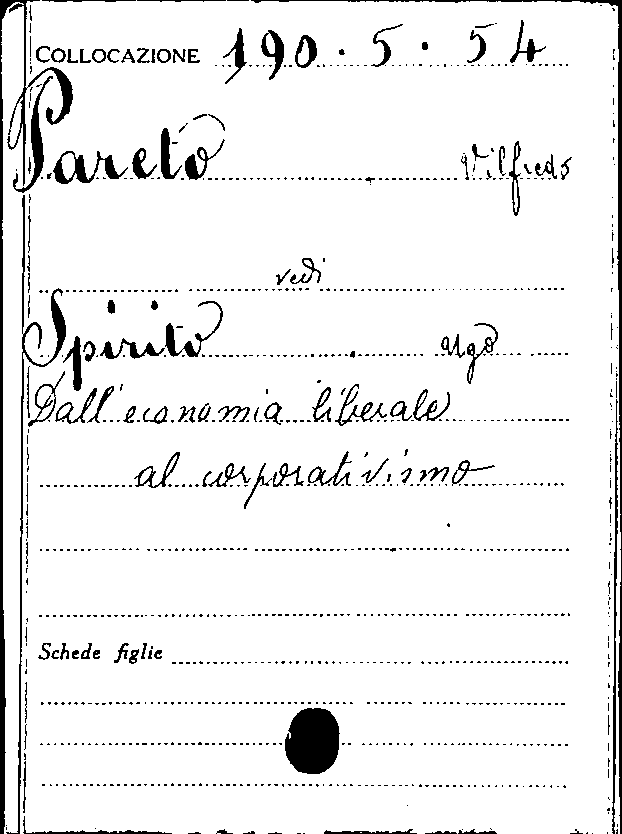 COLLOCAZIONE 190.5.54
Pareto Vilfredo
vedi
Spirito Ugo
Dall'economia liberale
al corporativismo
Schede figlie